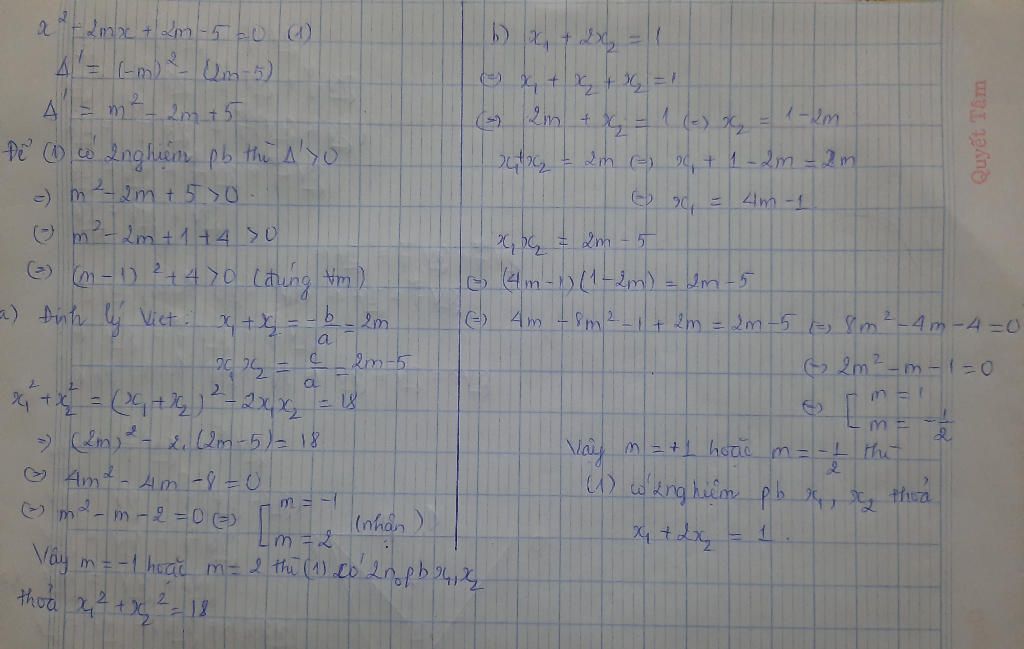 x² - 2mx + 2m - 5 = 0 (1)
Δ' = (-m)² - (2m-5)
Δ' = m² - 2m + 5
Để (1) có 2 nghiệm pb thì Δ' > 0
=> m² - 2m + 5 > 0.
(=) m² - 2m + 1 + 4 > 0
(=) (m - 1)² + 4 > 0 (đúng ∀m)
a) Định lý Viet: x₁ + x₂ = -b/a = 2m
x₁x₂ = c/a = 2m-5
x₁² + x₂² = (x₁ + x₂)² - 2x₁x₂ = 18
=> (2m)² - 2.(2m-5) = 18
(=) 4m² - 4m - 8 = 0
(=) m² - m - 2 = 0 (=) [ m = -1
m = 2 (nhận)
Vậy m = -1 hoặc m = 2 thì (1) có 2 no pb x₁, x₂
thoả x₁² + x₂² = 18
b) x₁ + 2x₂ = 1
(=) x₁ + x₂ + x₂ = 1
(=) 2m + x₂ = 1 (=) x₂ = 1 - 2m
x₁+x₂ = 2m (=) x₁ + 1 - 2m = 2m
(=) x₁ = 4m - 1
x₁x₂ = 2m - 5
(=) (4m - 1)(1 - 2m) = 2m - 5
(=) 4m - 8m² - 1 + 2m = 2m - 5 (=) 8m² - 4m - 4 = 0
(=) 2m² - m - 1 = 0
(=) [ m = 1
m = -1/2
Vậy m = +1 hoặc m = -1/2 thì
(1) có 2 nghiệm pb x₁, x₂ thoả
x₁ + 2x₂ = 1.
Quyết Tâm